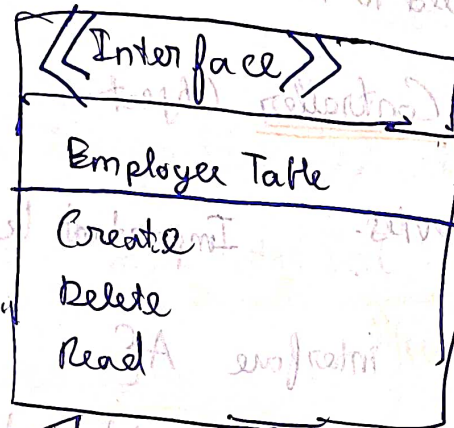 <<Interface>>
Employee Table
Create
Delete
Read